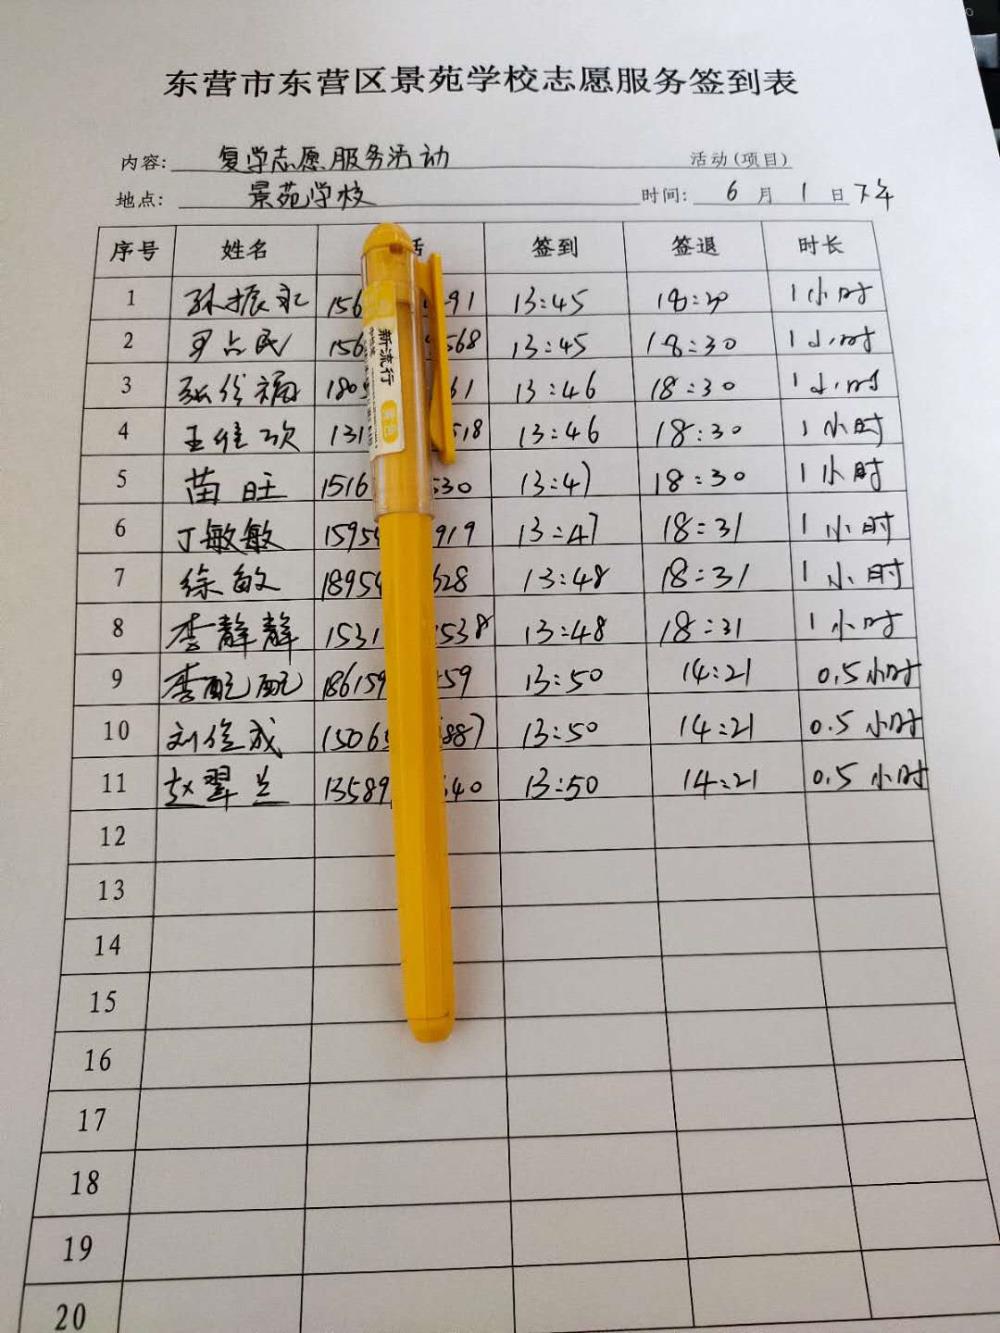 东营市东营区景苑学校志愿服务签到表
内容: 复学志愿服务活动 活动(项目)
地点: 景苑学校 时间: 6月1日下午
序号 姓名 话 签到 签退 时长
1 孙振永 156 91 13:45 18:30 1小时
2 占民 156 568 13:45 18:30 1小时
3 张 福 180 61 13:46 18:30 1小时
4 王维欢 131 518 13:46 18:30 1小时
5 苗旺 1516 530 13:47 18:30 1小时
6 丁敏敏 1595 919 13:47 18:31 1小时
7 徐敏 1895 628 13:48 18:31 1小时
8 李静静 1531 538 13:48 18:31 1小时
9 李配配 186159 59 13:50 14:21 0.5小时
10 刘俊成 1506 887 13:50 14:21 0.5小时
11 赵翠兰 13589 640 13:50 14:21 0.5小时
12
13
14
15
16
17
18
19
20
新流行